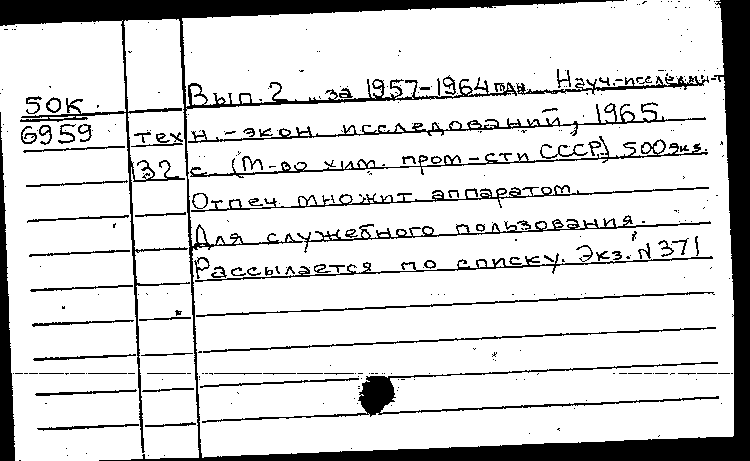 50К
6959
Вып. 2 за 1957-1964 г.дн. Науч.-исслед.ин-т
техн.-экон. исследований, 1965.
132 с. (М-во хим. пром-сти СССР) 500 экз.
Отпеч. множит. аппаратом.
Для служебного пользования.
Рассылается по списку. Экз. N 371